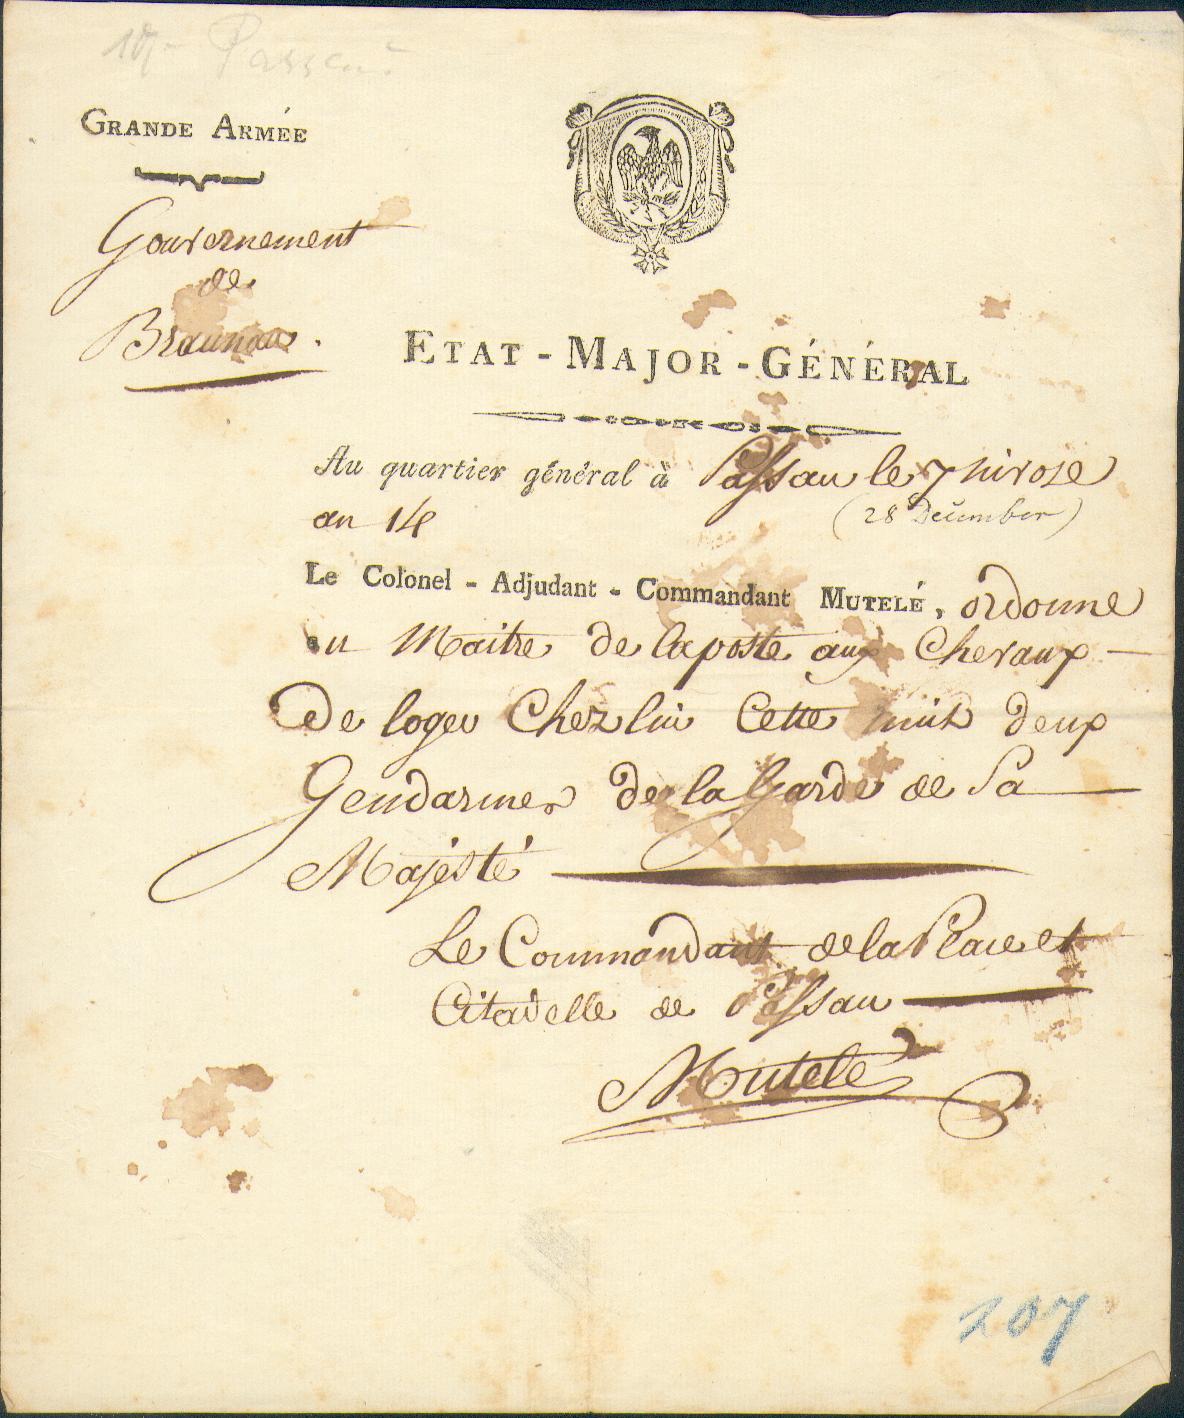 GRANDE ARMÉE
Gouvernement
de
Braunau.
ETAT-MAJOR-GÉNÉRAL
Au quartier général à Passau le 7 nivose
an 14 (28 December)
Le Colonel-Adjudant-Commandant MUTELÉ, ordonne
au Maitre de la poste aux Chevaux
De loger Chez lui Cette nuit deux
Gendarmes de la Garde de Sa
Majésté
Le Commandant de la Place et
Citadelle de Passau
Mutelé
207